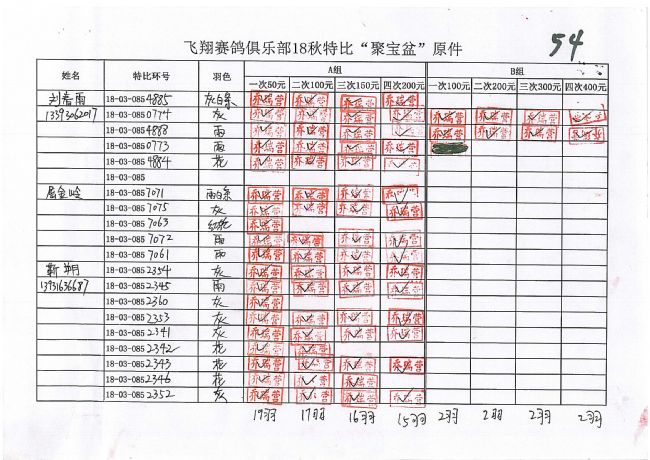 飞翔赛鸽俱乐部18秋特比“聚宝盆”原件
54
姓名 特比环号 羽色 A组 B组
一次50元 二次100元 三次150元 四次200元 一次100元 二次200元 三次300元 四次400元
刘春雨 18-03-0854885 灰白条 乔瑞营 乔瑞营 乔瑞营 乔瑞营
18-03-0850774 灰 乔瑞营 乔瑞营 乔瑞营 乔瑞营 乔瑞营 乔瑞营
18-03-0854888 雨 乔瑞营 乔瑞营 乔瑞营 乔瑞营 乔瑞营 乔瑞营 乔瑞营
18-03-0850773 雨 乔瑞营 乔瑞营 乔瑞营 乔瑞营
18-03-0854884 花 乔瑞营 乔瑞营 乔瑞营 乔瑞营
18-03-085
屈金岭 18-03-0857071 雨白条 乔瑞营 乔瑞营 乔瑞营 乔瑞营
18-03-0857075 灰 乔瑞营 乔瑞营 乔瑞营 乔瑞营
18-03-0857063 乔瑞营
18-03-0857072 雨 乔瑞营 乔瑞营 乔瑞营 乔瑞营
18-03-0857061 雨 乔瑞营 乔瑞营 乔瑞营 乔瑞营
靳翔 18-03-0852354 灰 乔瑞营 乔瑞营 乔瑞营 乔瑞营
13931636687 18-03-0852345 雨 乔瑞营 乔瑞营 乔瑞营 乔瑞营
18-03-0852360 灰 乔瑞营
18-03-0852353 灰 乔瑞营 乔瑞营 乔瑞营 乔瑞营
18-03-0852341 灰 乔瑞营 乔瑞营 乔瑞营 乔瑞营
18-03-0852342 花 乔瑞营 乔瑞营
18-03-0852343 花 乔瑞营 乔瑞营 乔瑞营 乔瑞营
18-03-0852346 花 乔瑞营 乔瑞营 乔瑞营
18-03-0852352 灰 乔瑞营 乔瑞营 乔瑞营 乔瑞营
19羽 17羽 16羽 15羽 2羽 2羽 2羽 2羽